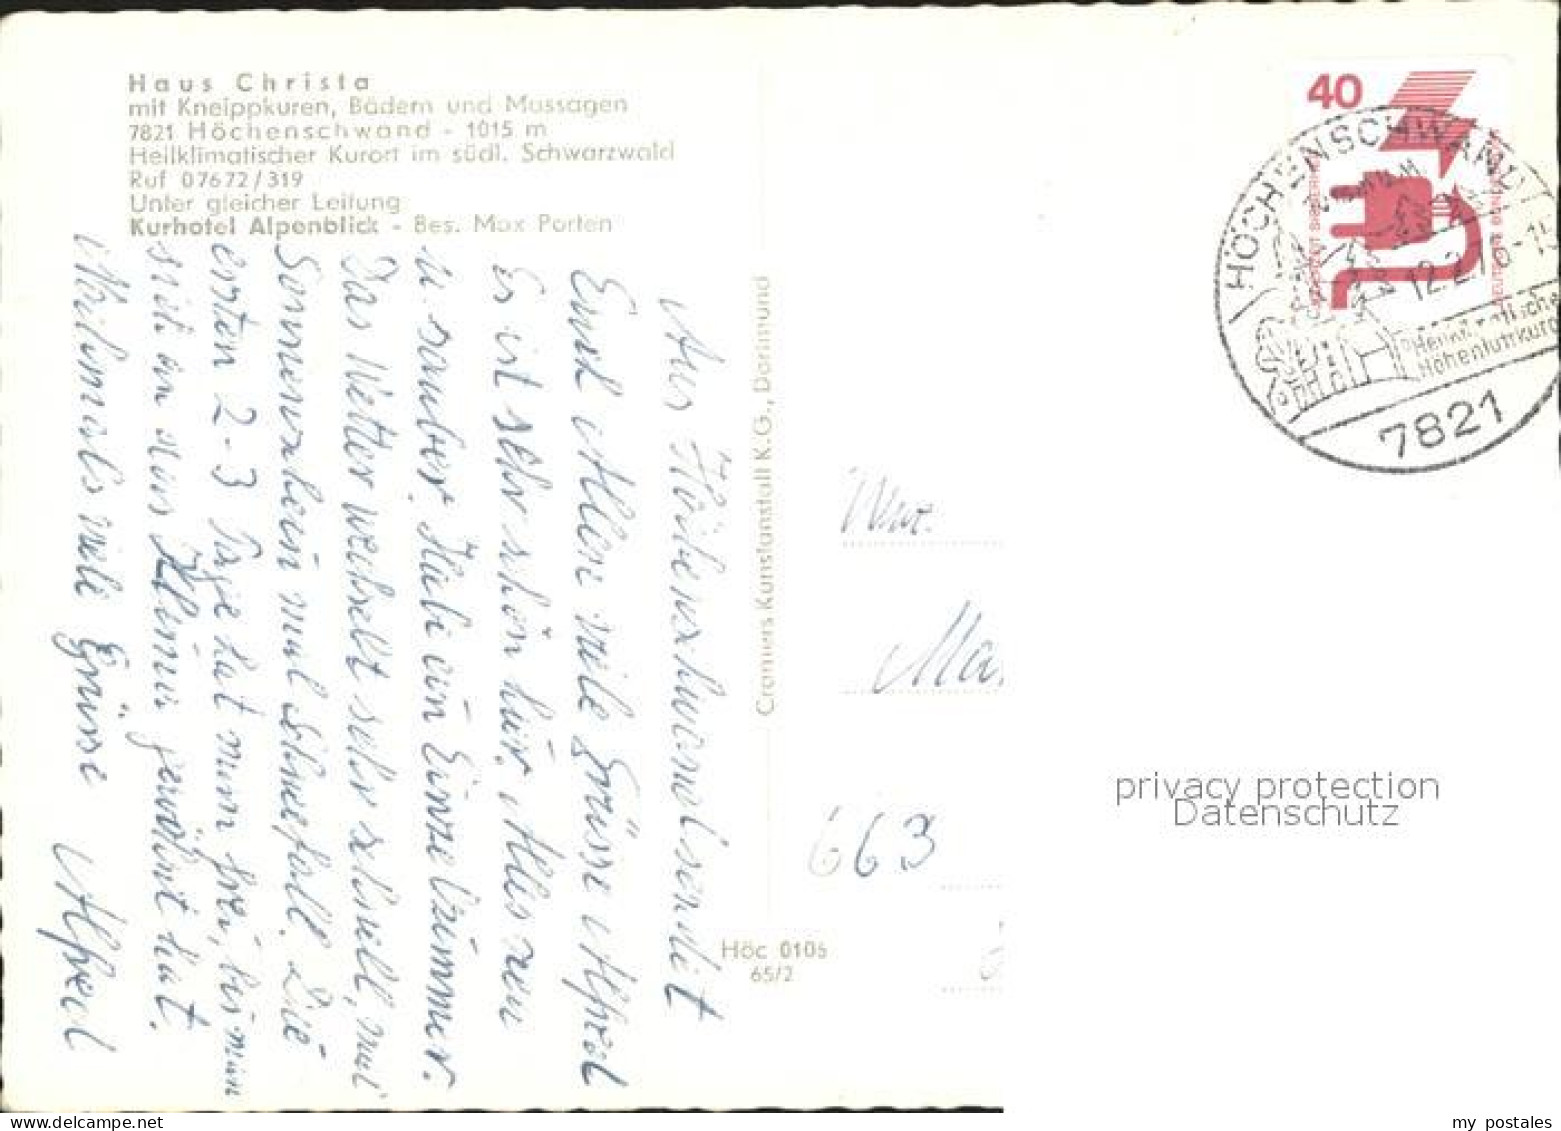 Haus Christa
mit Kneippkuren, Bädern und Massagen
7821 Höchenschwand - 1015 m
Heilklimatischer Kurort im südl. Schwarzwald
Ruf 07672/319
Unter gleicher Leitung
Kurhotel Alpenblick - Bes. Max Porten
Aus Höchenschwand sendet
Euch Allen viele Grüsse Alfred
Es ist sehr schön hier, Alles neu
u. sauber. Habe ein Einzelzimmer.
Das Wetter wechselt sehr schnell, mal
Sonnenschein mal Schneefall. Die
ersten 2-3 Tage hat man frei, bis man
sich an das Klima gewöhnt hat.
Nochmals viele Grüsse Alfred
Cramers Kunstanstalt K.G., Dortmund
Höc 0105
65/2
40
HÖCHENSCHWAND
12.2.76-15
Heilklimatischer
Höhenluftkuro
7821
Ma
663
privacy protection
Datenschutz
my postales